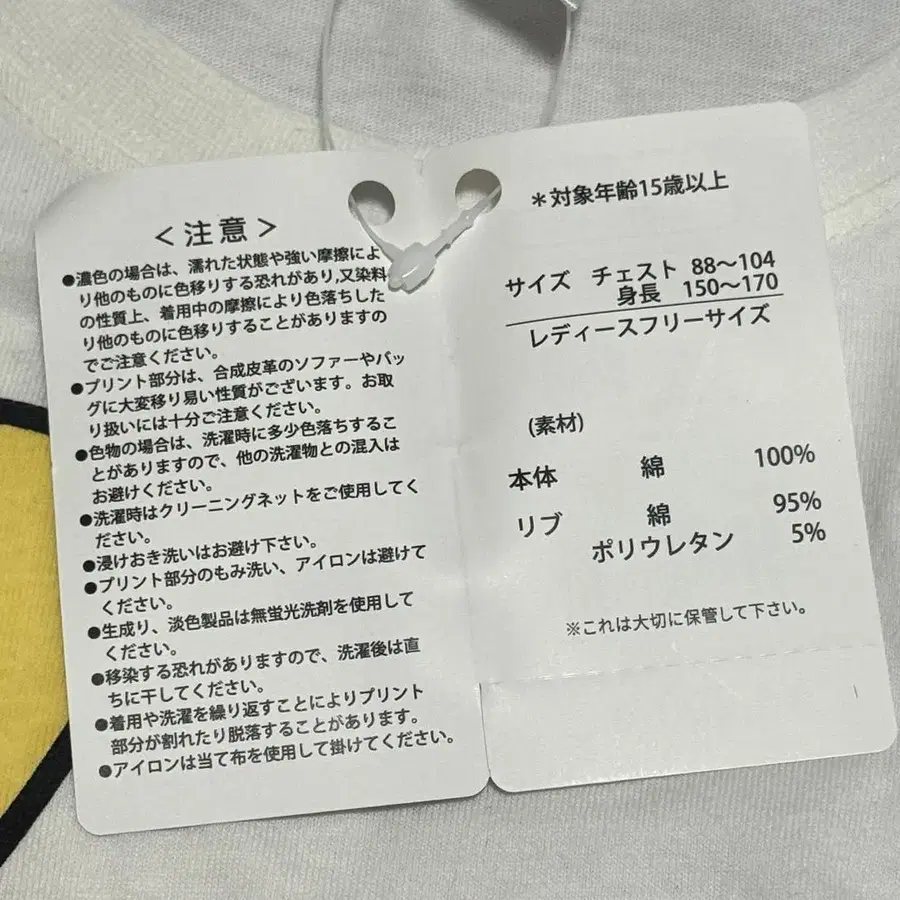 ＜注意＞
●濃色の場合は、濡れた状態や強い摩擦によ
り他のものに色移りする恐れがあり,又染料
の性質上、着用中の摩擦により色落ちした
り他のものに色移りすることがありますの
でご注意ください。
●プリント部分は、合成皮革のソファーやバッ
グに大変移り易い性質がございます。お取
り扱いには十分ご注意ください。
●色物の場合は、洗濯時に多少色落ちするこ
とがありますので、他の洗濯物との混入は
お避けください。
●洗濯時はクリーニングネットをご使用してく
ださい。
●浸けおき洗いはお避け下さい。
●プリント部分のもみ洗い、アイロンは避けて
ください。
●生成り、淡色製品は無蛍光洗剤を使用して
ください。
●移染する恐れがありますので、洗濯後は直
ちに干してください。
●着用や洗濯を繰り返すことによりプリント
部分が割れたり脱落することがあります。
●アイロンは当て布を使用して掛けてください。
＊対象年齢15歳以上
サイズ チェスト 88〜104
身長 150〜170
レディースフリーサイズ
(素材)
本体 綿 100%
リブ 綿 95%
ポリウレタン 5%
※これは大切に保管して下さい。